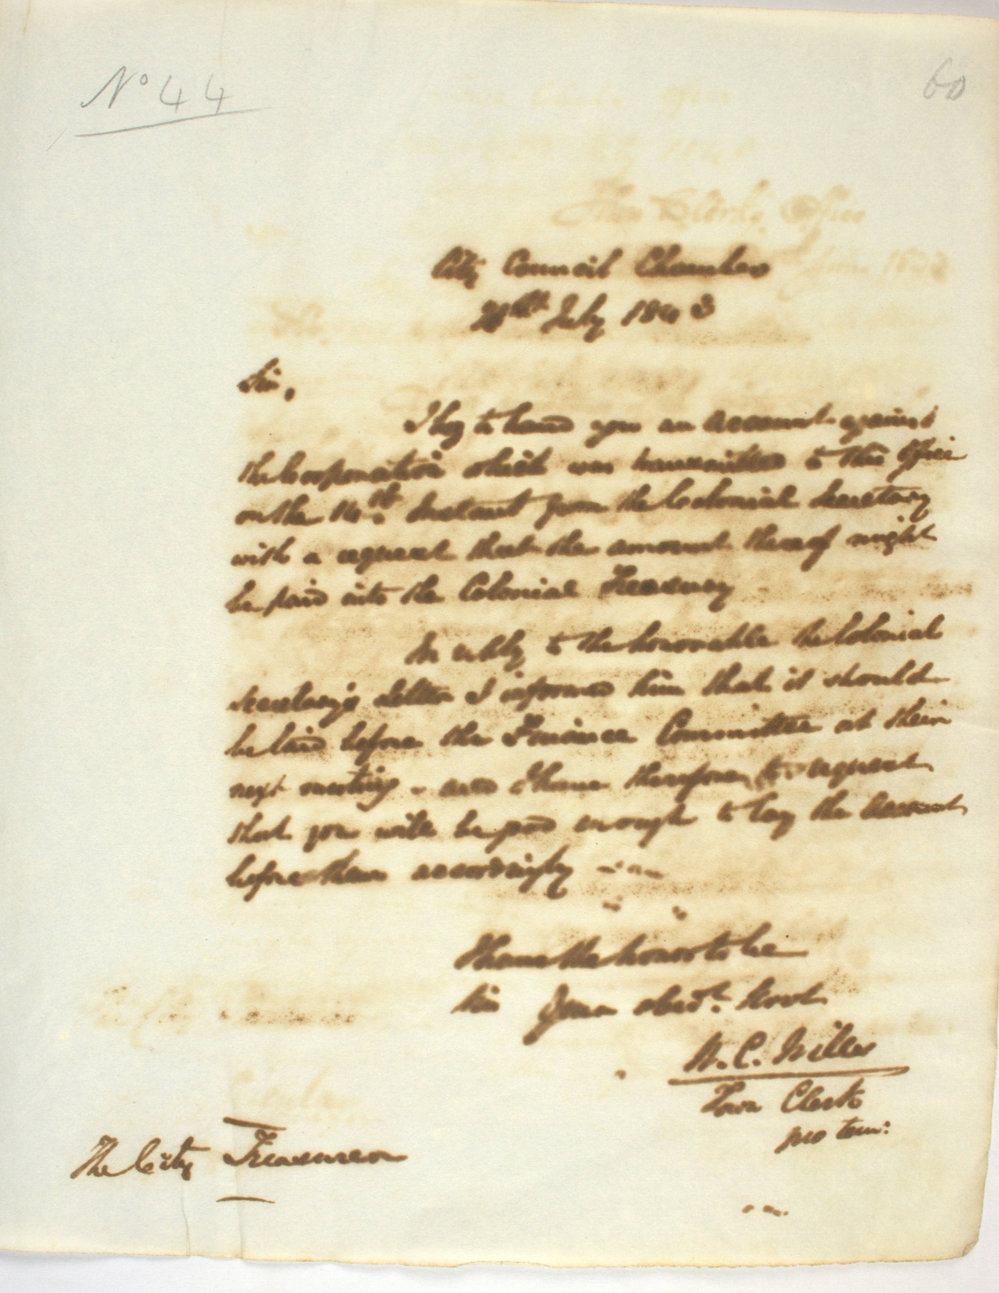 No 44
60
City Council Chamber
July 1843
Sir,
I beg to hand you an account against
the Corporation which was transmitted to this Office
on the 14th Instant from the Colonial Secretary
with a request that the amount thereof might
be paid into the Colonial Treasury
In reply to the honorable the Colonial
Secretary's Letter I informed him that it should
be laid before the Finance Committee at their
next meeting - and I have therefore to request
that you will be good enough to lay the Account
before them accordingly
I have the honor to be
Sir Your obedt. Servt.
W. C. Miller
Town Clerk
pro tem:
The City Treasurer